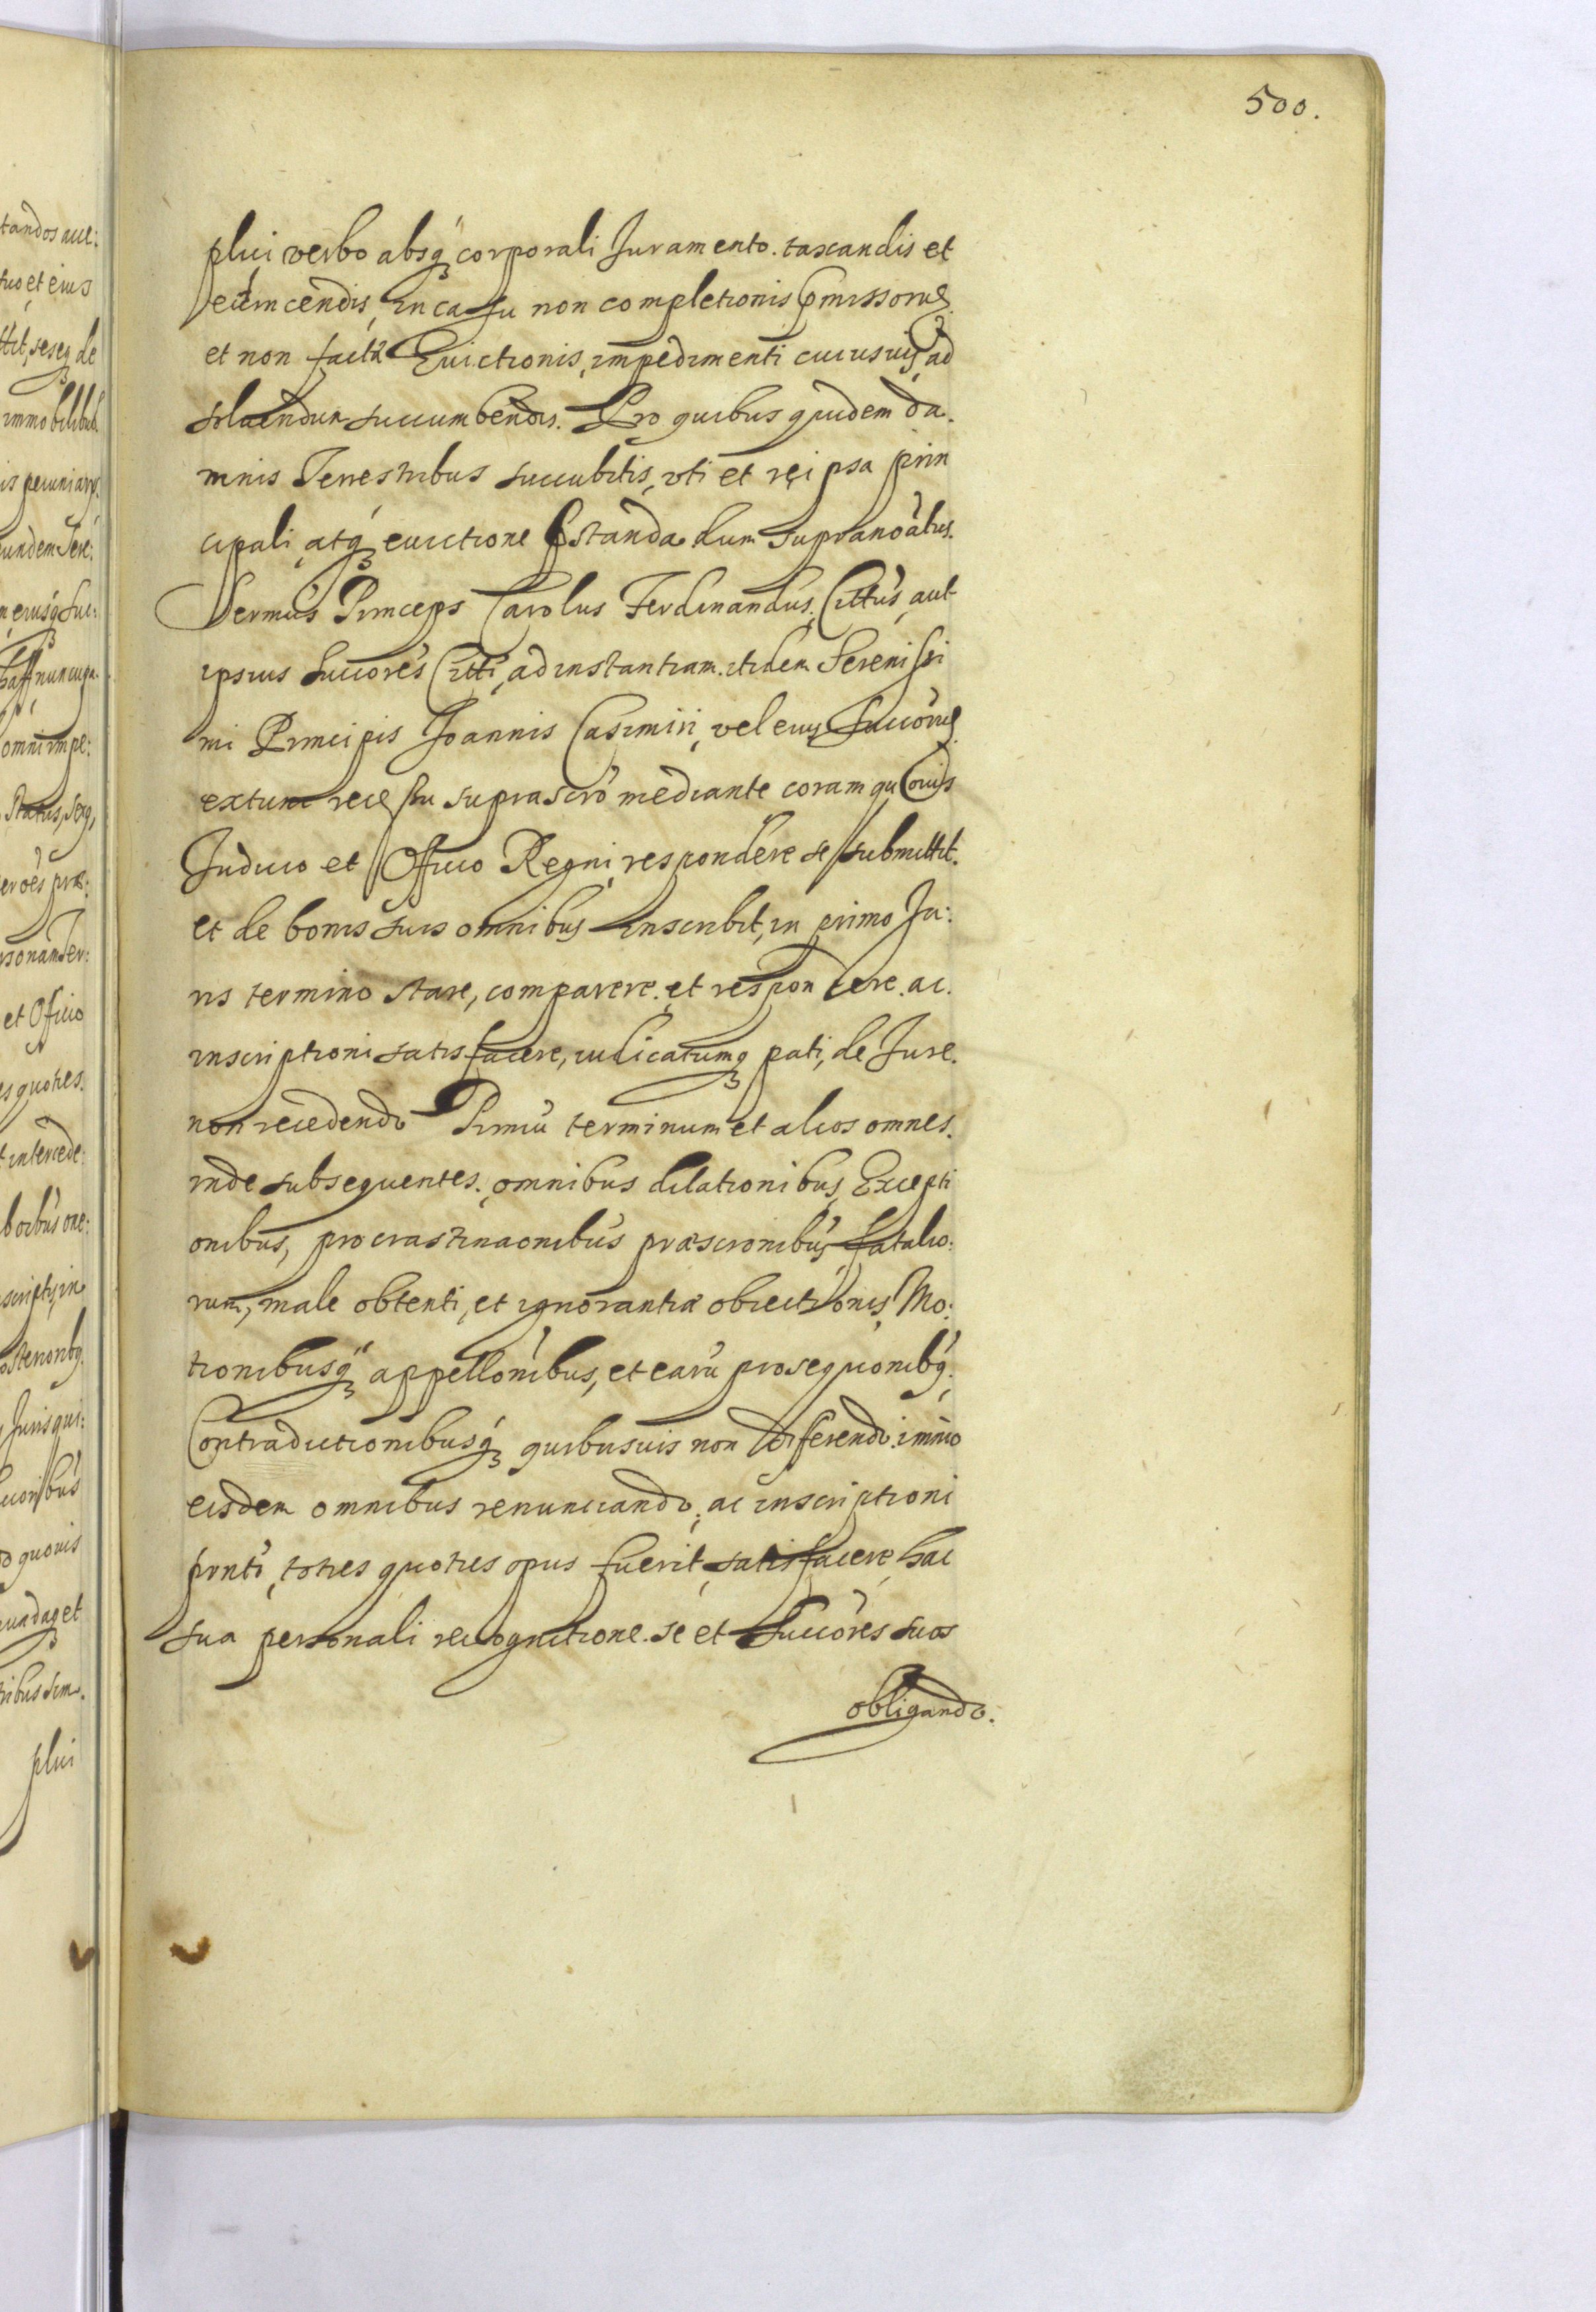 500.
plici verbo absq́ꝫ corporali Juramento. taxandis et
euincendis, in casu non completionis pmissorũ
et non factæ Euictionis, impedimenti cuiusuis, ad
soluendum succumbendis. Pro quibus quidem da.
mnis Terrestribus succubitis, vti et rei psa prin
cipali atq́ꝫ euictione pstanda dum supranoãtus.
Sermus Princeps Carolus Ferdinandus, Cittus, aut
ipsius Succores Citti, ad instantiam itidem Serenissi
mi Principis Joannis Casimiri, vel eius Succorũ
extunc recessu suprascro mediante coram quouis
Judicio et Officio Regni, respondere se submittit.
et de bonis suis omnibus inscribit, in primo Ju:
ris termino stare, comparere. et respondere. ac.
inscriptioni satisfacere, iudicatumqꝫ pati, de Jure.
non recedendo Primũ terminum et alios omnes.
inde subsequentes. omnibus dilationibus, Excepti
onibus, procrastinaonibus præscronibus, fatalio:
rum, male obtenti, et ignorantiæ obiectionis, Mo:
tionibusq́ꝫ appellonibus, et earũ prosequonibꝫ.
Contradictionibusq́ꝫ quibusuis non differendo. immo
eisdem omnibus renunciando, ac inscriptioni
pnti, toties quoties opus fuerit, satisfacere, hac
sua personali recognitione. se et Succores suos
obligando.
tandos
tuo et eius
ttit, seseq de
immobilibus
is pecuniarys
eundem Sere:
eiusq Suc:
nuncupa.
omni impe:
status, seqꝫ
et Officio
es quoties.
t intercede:
scripti, in
Juris qui:
quouis
tribus sim.
plici